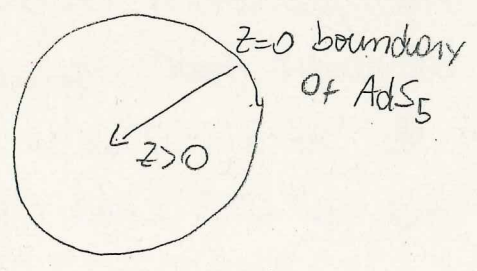 z=0 boundary
of AdS5
z>0